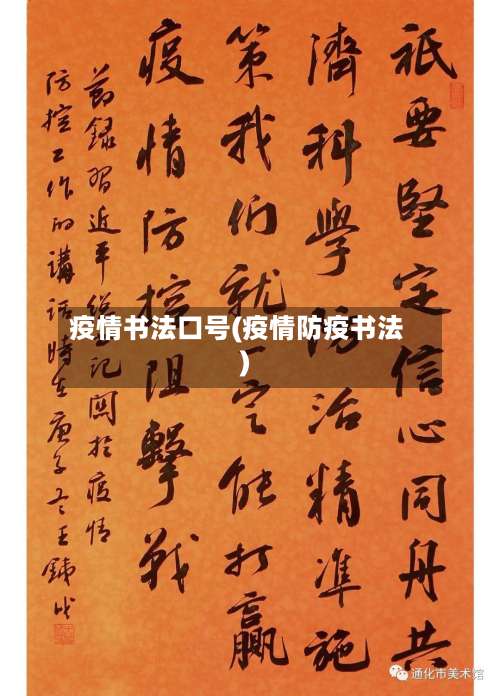 祇要堅定信心同舟共
濟科學防治精準施
策我們就一定能打贏
疫情防控阻擊戰
節録習近平總書記關於疫情
防控工作的講話時在庚子
疫情书法口号(疫情防疫书法
)
通化市美术馆